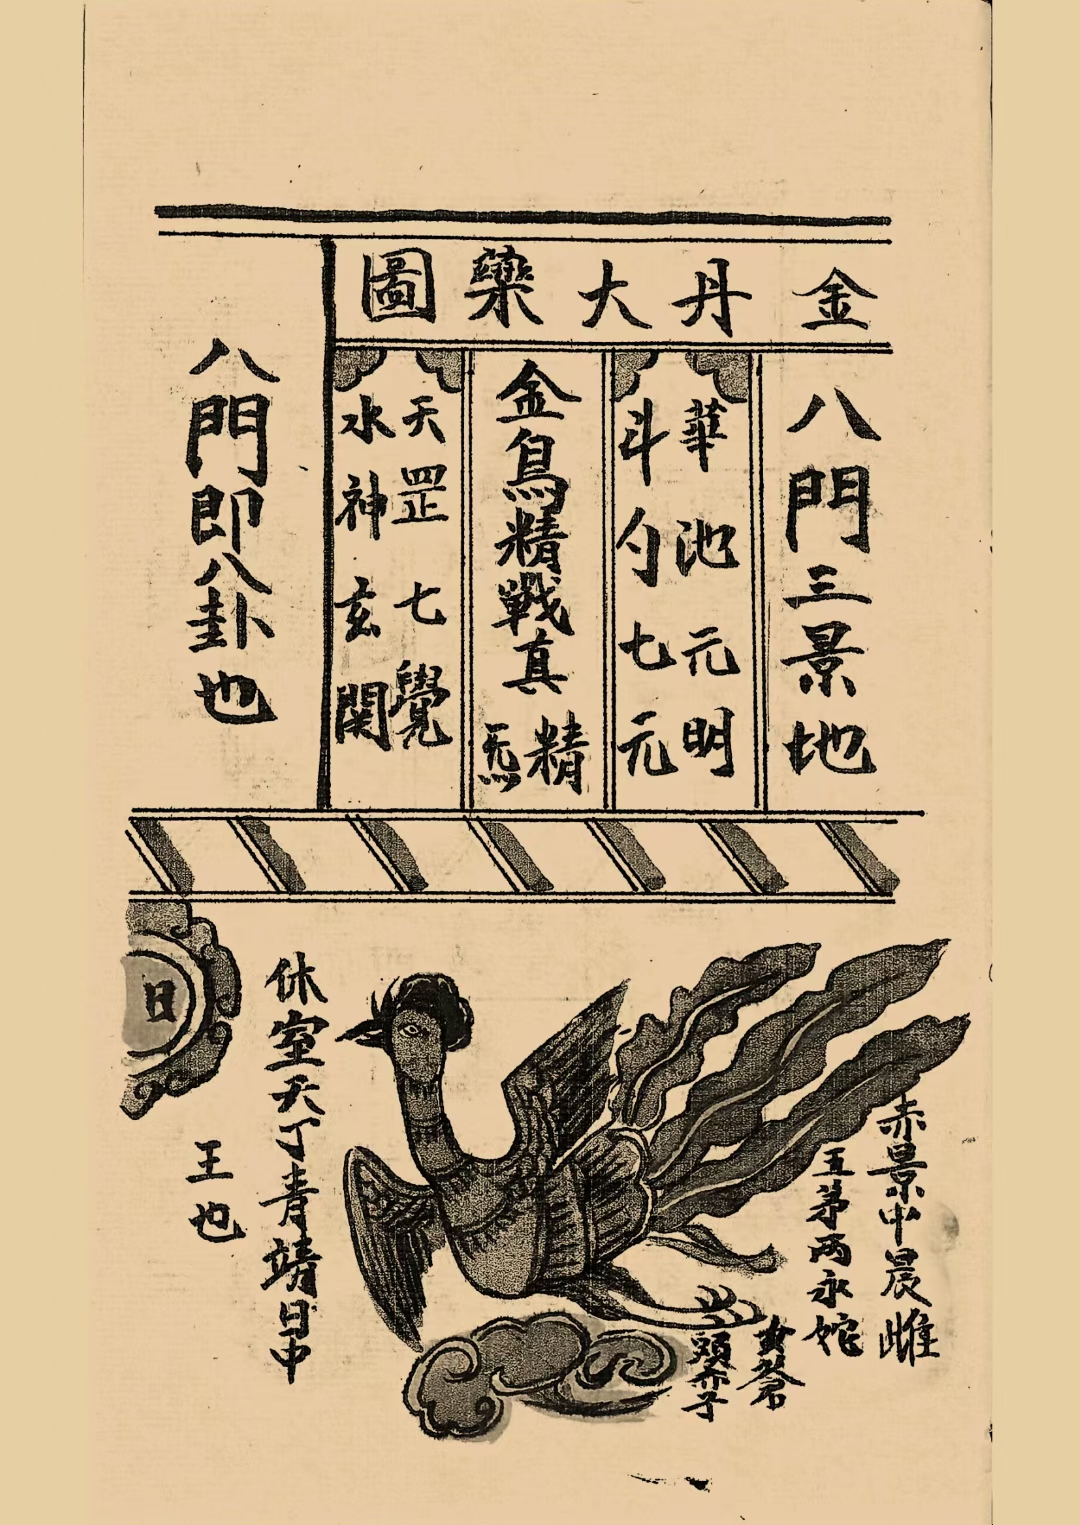 金丹大藥圖
八門三景地
華池元明
斗勺七元
金烏精戰真精炁
天罡七覺
水神玄関
八門即八卦也
赤景中晨
五茅两永
頭
休室天丁青靖日中
王也
日